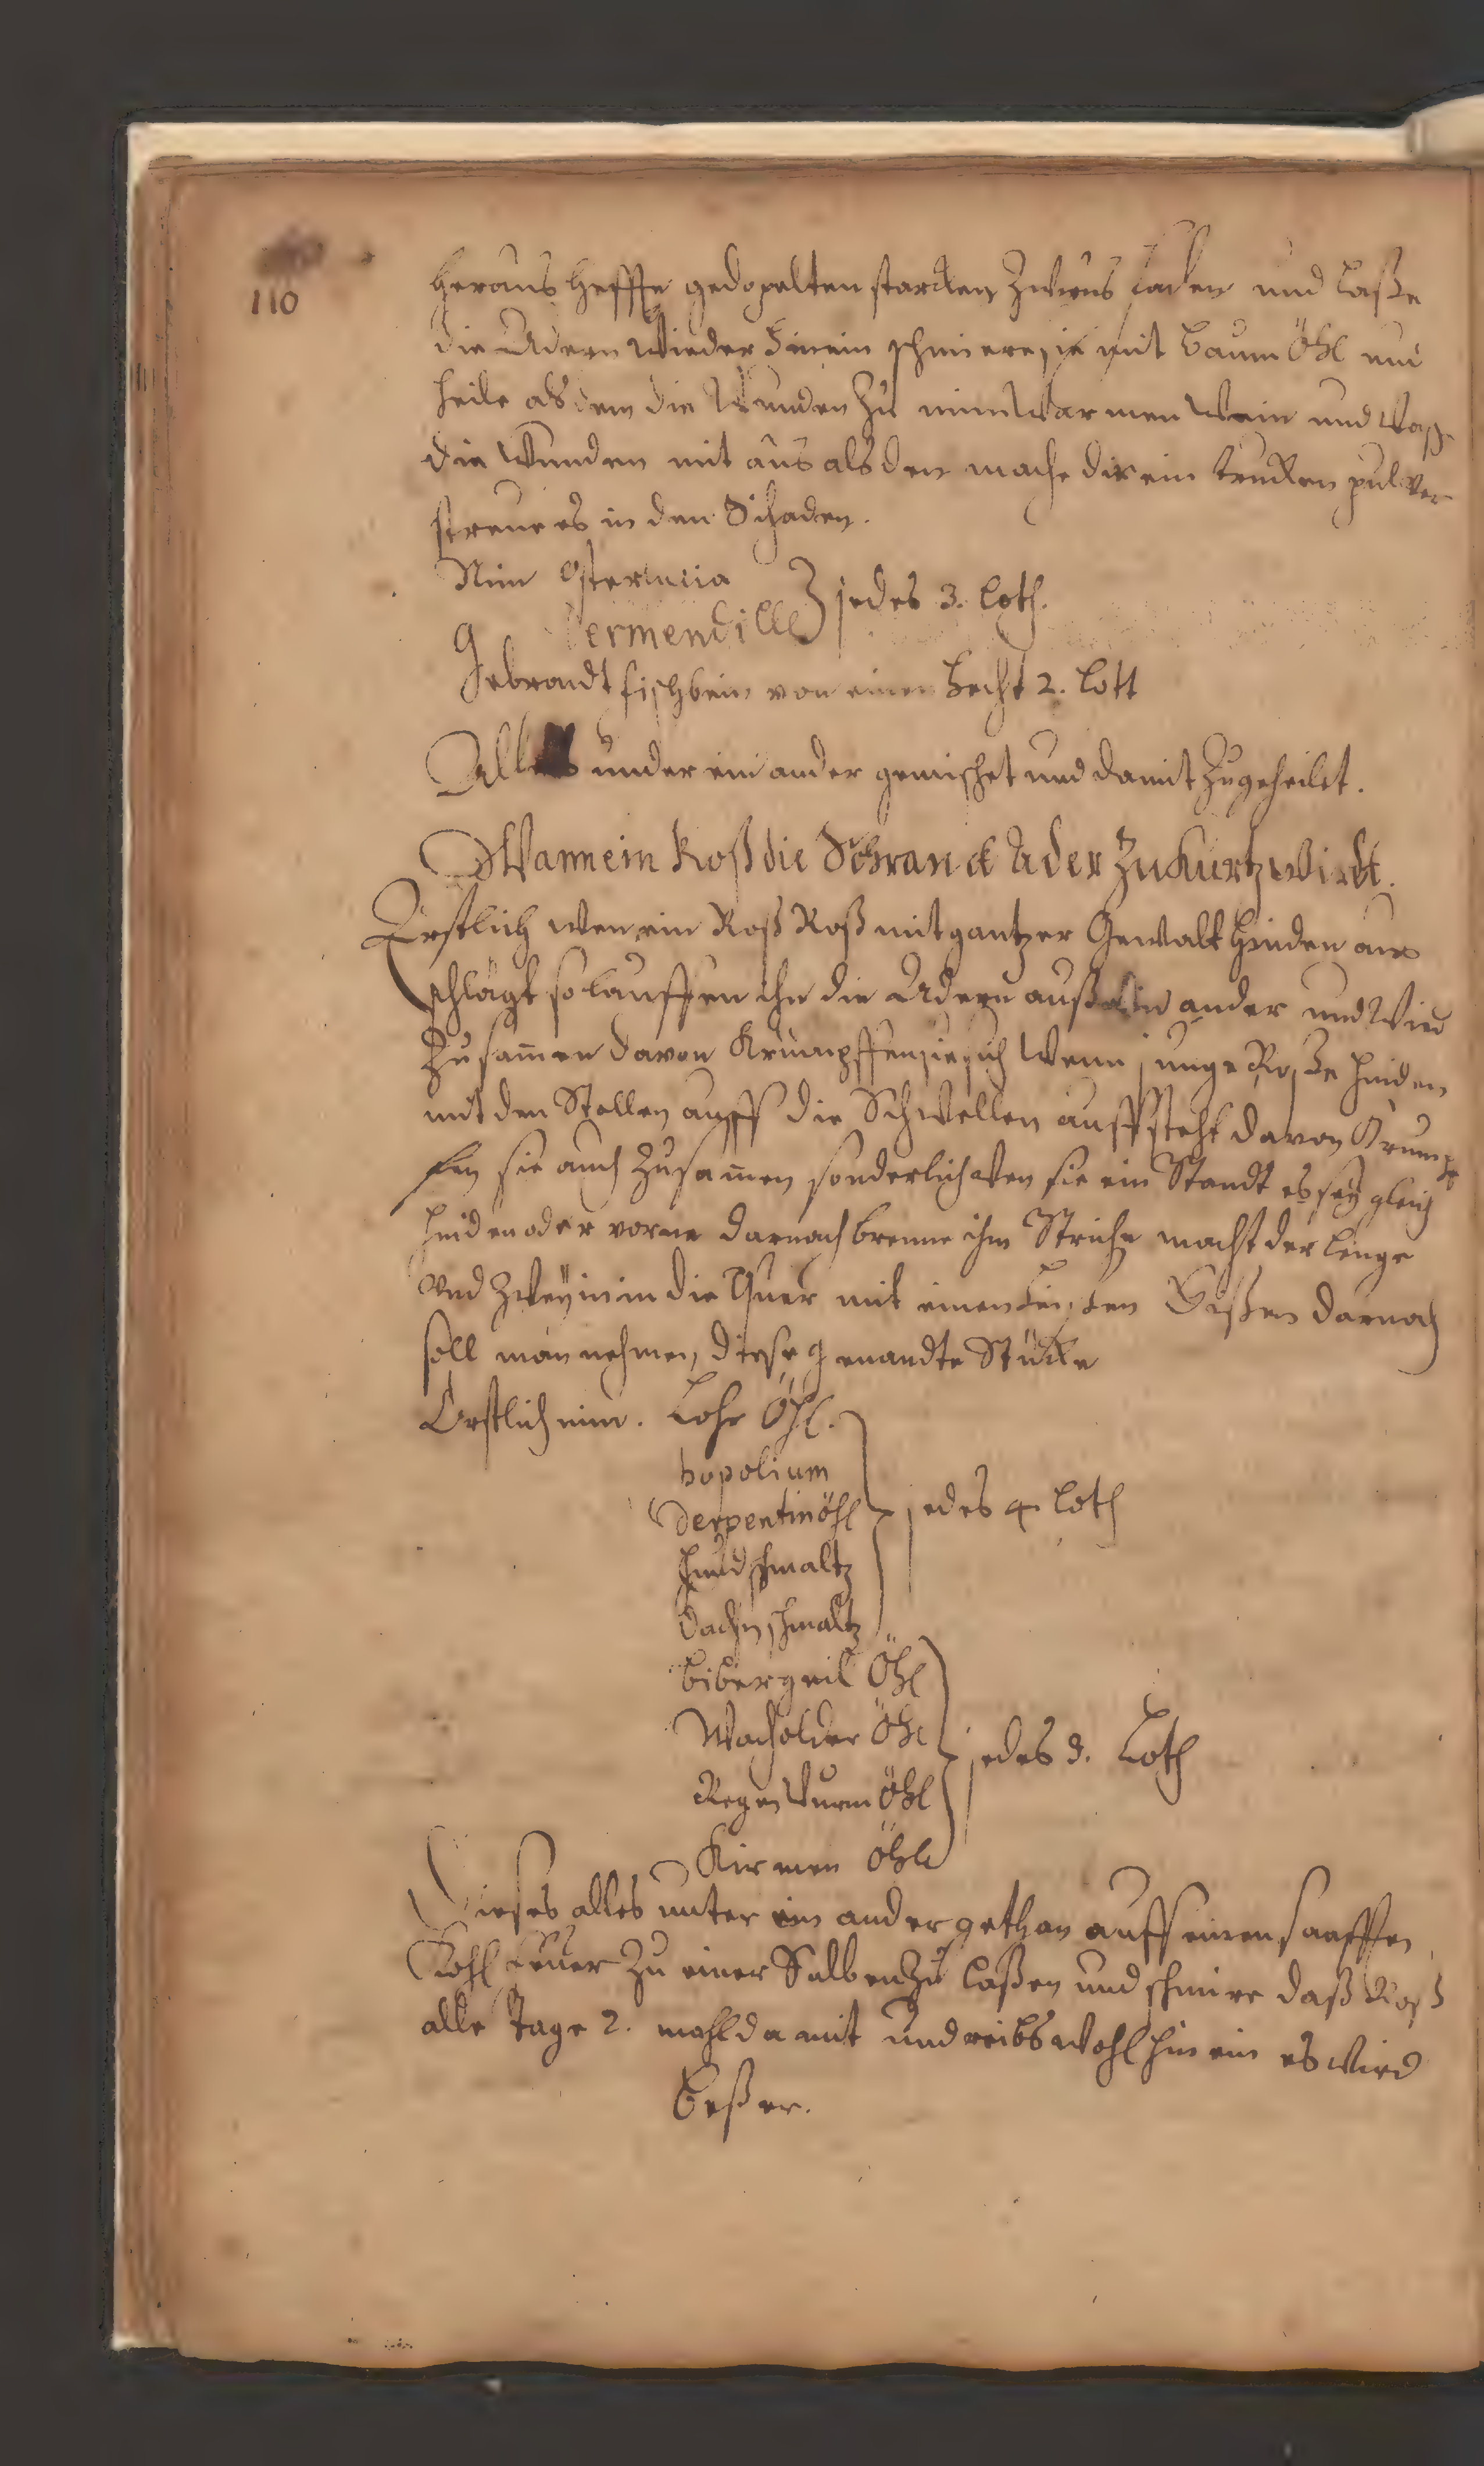 110
heraus heffte gedopelten starcken Zwirns faden und Laße
die Adern wieder hinein schmiere sie mit baum Öhl und
heile als den die Wunden zu nim warmen wein und wasche
die Wunden mit aus als den mache dir ein trucken pulver
streue es in den Schaden.
Nim Osterlucia
Termendille } jedes 3. Loth.
Gebrandt fischbein von einen hecht 2. Lott
Alles under ein ander gemischet und damit zugeheilet.
Wann ein Roß die Schranck Ader zu kurtz wirdt.
Erstlich wen ein Roß Roß mit gantzer Gewalt hinden aus
schlägt so lauffen ihn die Adern auß ein ander und wied
zusamen davon krumpffen sie sich wenn junge Roße hinden
mit den Stollen auff die Schwellen auffsteht davon krump
fen sie auch zusamen sonderlich wen sie ein Standt es sey gleich
hinden oder vorne darnach brenne ihm Striche nach der lenge
und zwey in in die Quer mit einen Eißen darnach
soll man nehmen, diese genandte Stücke
Erstlich nim. Lohr Öhl.
bopolium
Derpentinöhl } jedes 4 Loth
hundschmaltz
Dachsschmaltz
bibergeil Öhl
Wacholder Öhl } jedes 3. Loth
Regen Wurm Öhl
Kirmen Öhle
Dieses alles unter ein ander gethan auff einen sanfften
Kohl feuer zu einer Salben zu laßen und schmire daß Roß
alle Tage 2. mahl damit und reibs wohl hin ein es wird
beßer.